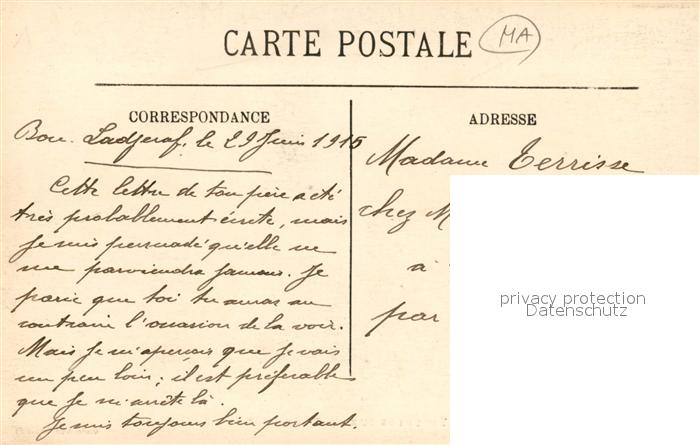 CARTE POSTALE
MA
CORRESPONDANCE
ADRESSE
Bou. Ladjeraf, le 29 Juin 1915
Madame Terrisse
chez M
à
par
Cette lettre de ton père a été
très probablement écrite, mais
je suis persuadé qu'elle ne
me parviendra jamais. Je
parie que toi tu auras au
contraire l'occasion de la voir.
Mais je m'aperçois que je vais
un peu loin; il est préférable
que je m'arrête là.
Je suis toujours bien portant.
privacy protection
Datenschutz